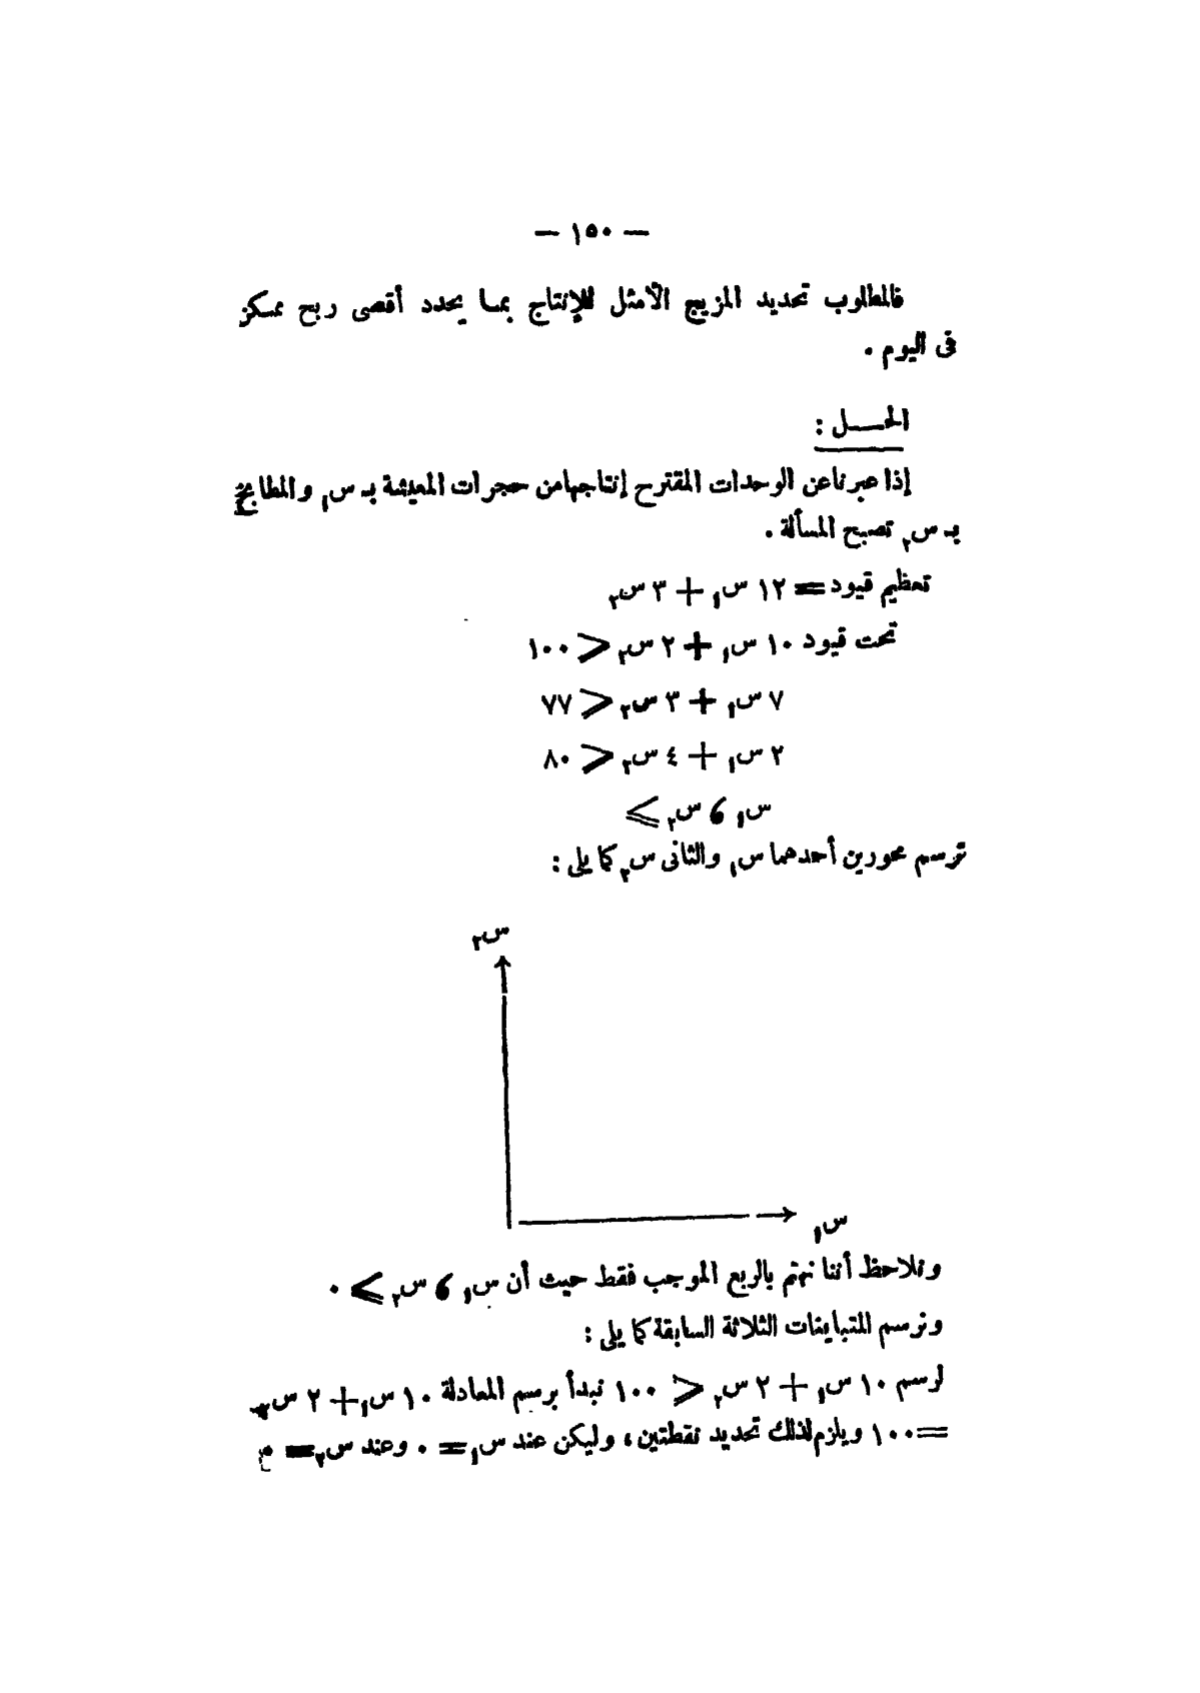 — ١٥٠ —
فالمطلوب تحديد المزيج الأمثل للإنتاج بما يحدد أقصى ربح ممكن
فى اليوم .
الحـــل :
إذا عبرنا عن الوحدات المقترح إنتاجها من حجرات المعيشة بـ س₁ والمطابخ
بـ س₂ تصبح المسألة .
تعظيم قيود = ١٢ س₁ + ٣ س₂
تحت قيود ١٠ س₁ + ٢ س₂ ⩽ ١٠٠
٧ س₁ + ٣ س₂ ⩽ ٧٧
٢ س₁ + ٤ س₂ ⩽ ٨٠
س₁ ، س₂ ⩾
ترسم محورين أحدهما س₁ والثانى س₂ كما يلى :
س₂
س₁
ونلاحظ أننا نهتم بالربع الموجب فقط حيث أن س₁ ، س₂ ⩾ ٠
ونرسم المتباينات الثلاثة السابقة كما يلى :
لرسم ١٠ س₁ + ٢ س₂ ⩽ ١٠٠ نبدأ برسم المعادلة ١٠ س₁ + ٢ س₂
= ١٠٠ ويلزم لذلك تحديد نقطتين ، وليكن عند س₁ = ٠ وعند س₂ =